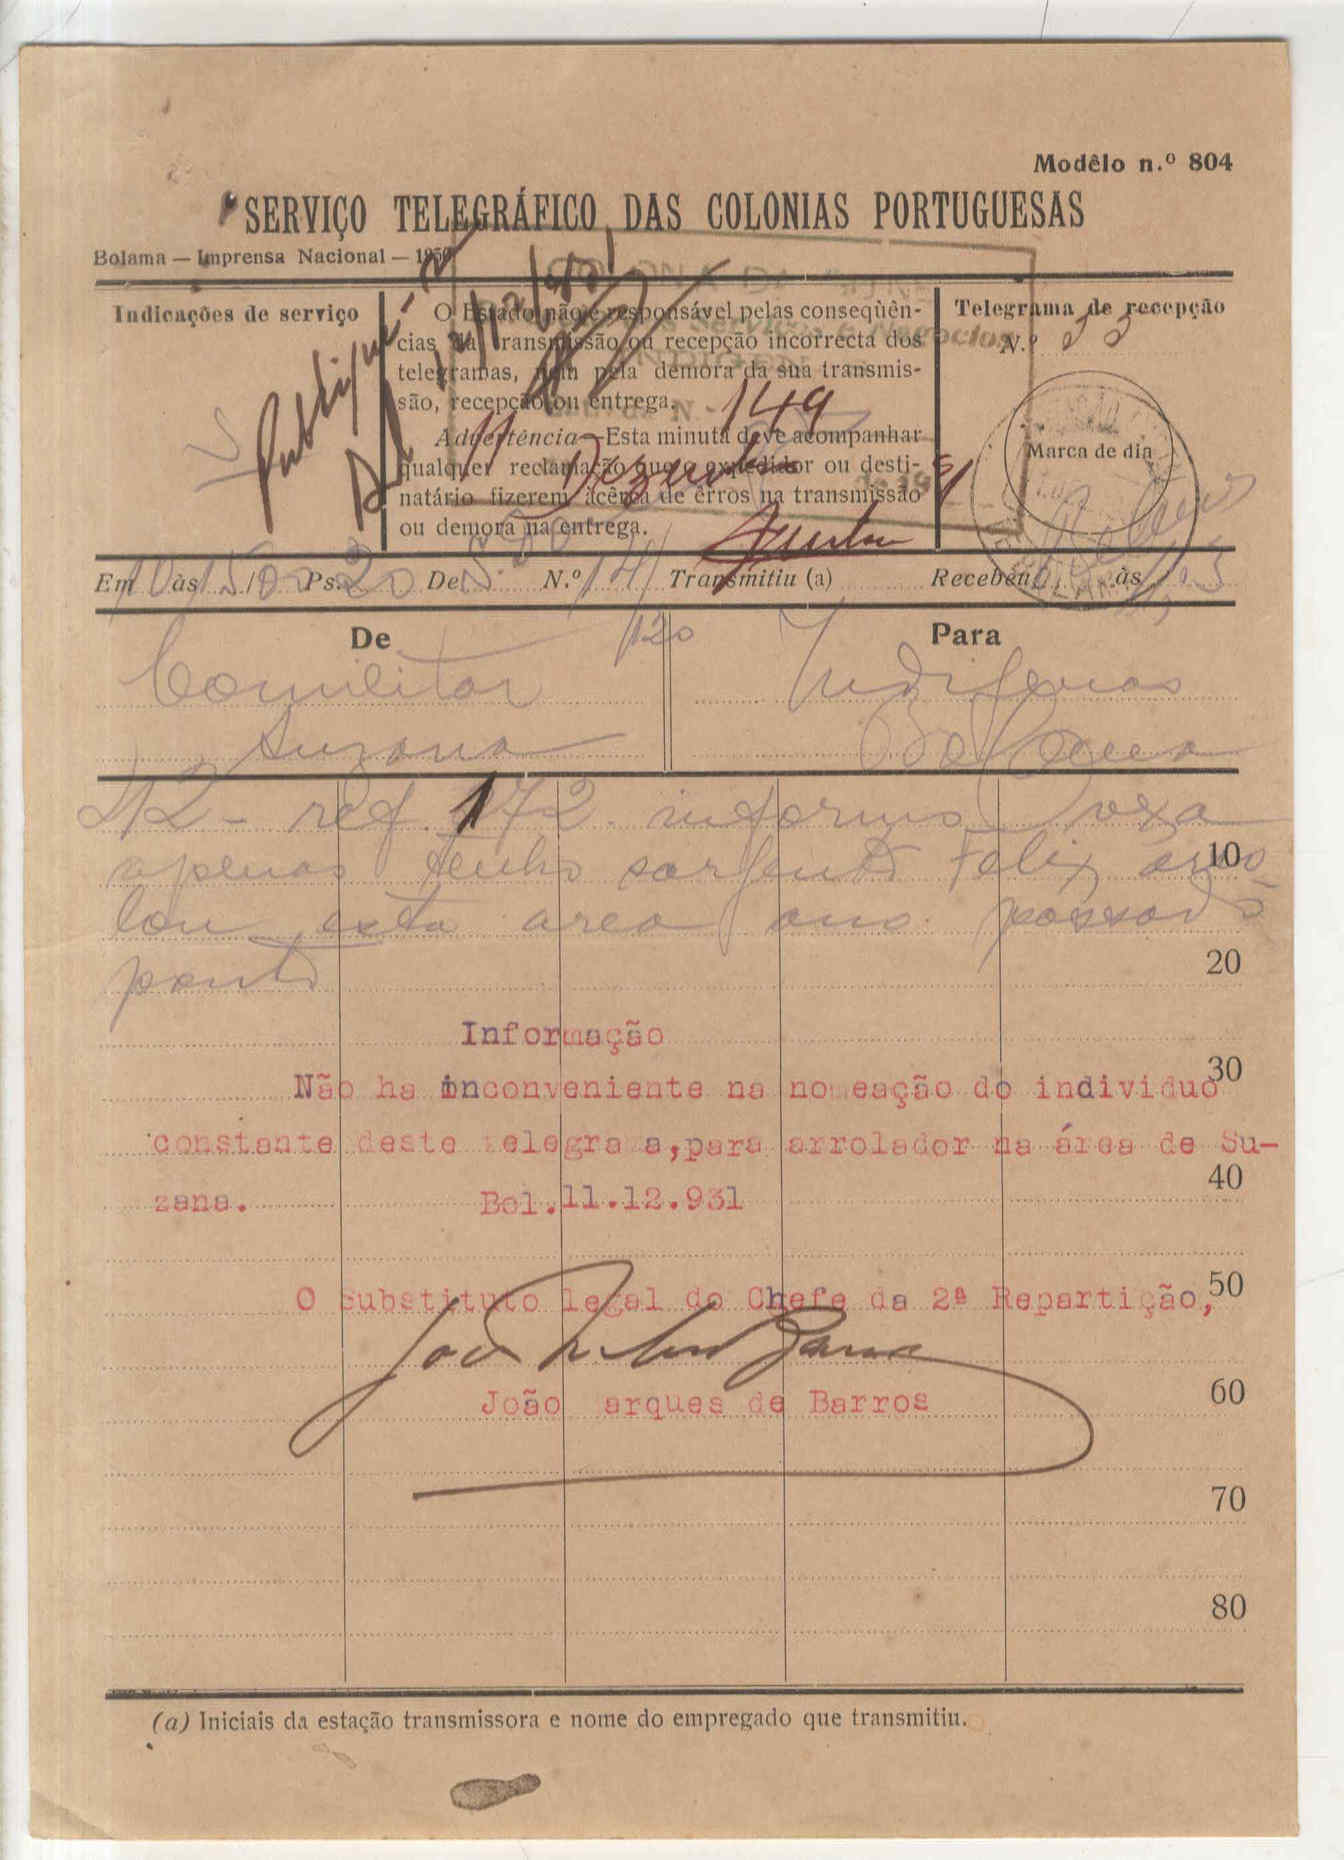 Modêlo n.º 804
SERVIÇO TELEGRÁFICO DAS COLONIAS PORTUGUESAS
Bolama — Imprensa Nacional — 1930
Indicações de serviço
Publique-se
12/12/931
O Estado não é responsável pelas conseqüên-
cias da transmissão ou recepção incorrecta dos
telegramas, nem pela demora da sua transmis-
são, recepção ou entrega.
Advertência—Esta minuta deve acompanhar
qualquer reclamação que o expedidor ou desti-
natário fizerem àcêrca de êrros na transmissão
ou demora na entrega.
COLONIA DA GUINÉ
Serviços e Negocios
INDIGENAS
N. 149
11 Dezembro de 1931
Telegrama de recepção
N.º 23
Marca de dia
Em 10 às 15/00 Ps. 20 De N.º 141 Transmitiu (a) Recebeu às
120
De
Para
Comilitar
Suzana
Indigenas
Bolama
42 - ref. 172 informo Vexa
apenas tenho sargento Felix arro
lou esta area ano passado
ponto
Informação
Não ha inconveniente na nomeação do individuo
constante deste telegra a,para arrolador na área de Su-
zana. Bol.11.12.931
O Substituto legal do Chefe da 2ª Repartição,
João arques de Barros
10
20
30
40
50
60
70
80
(a) Iniciais da estação transmissora e nome do empregado que transmitiu.